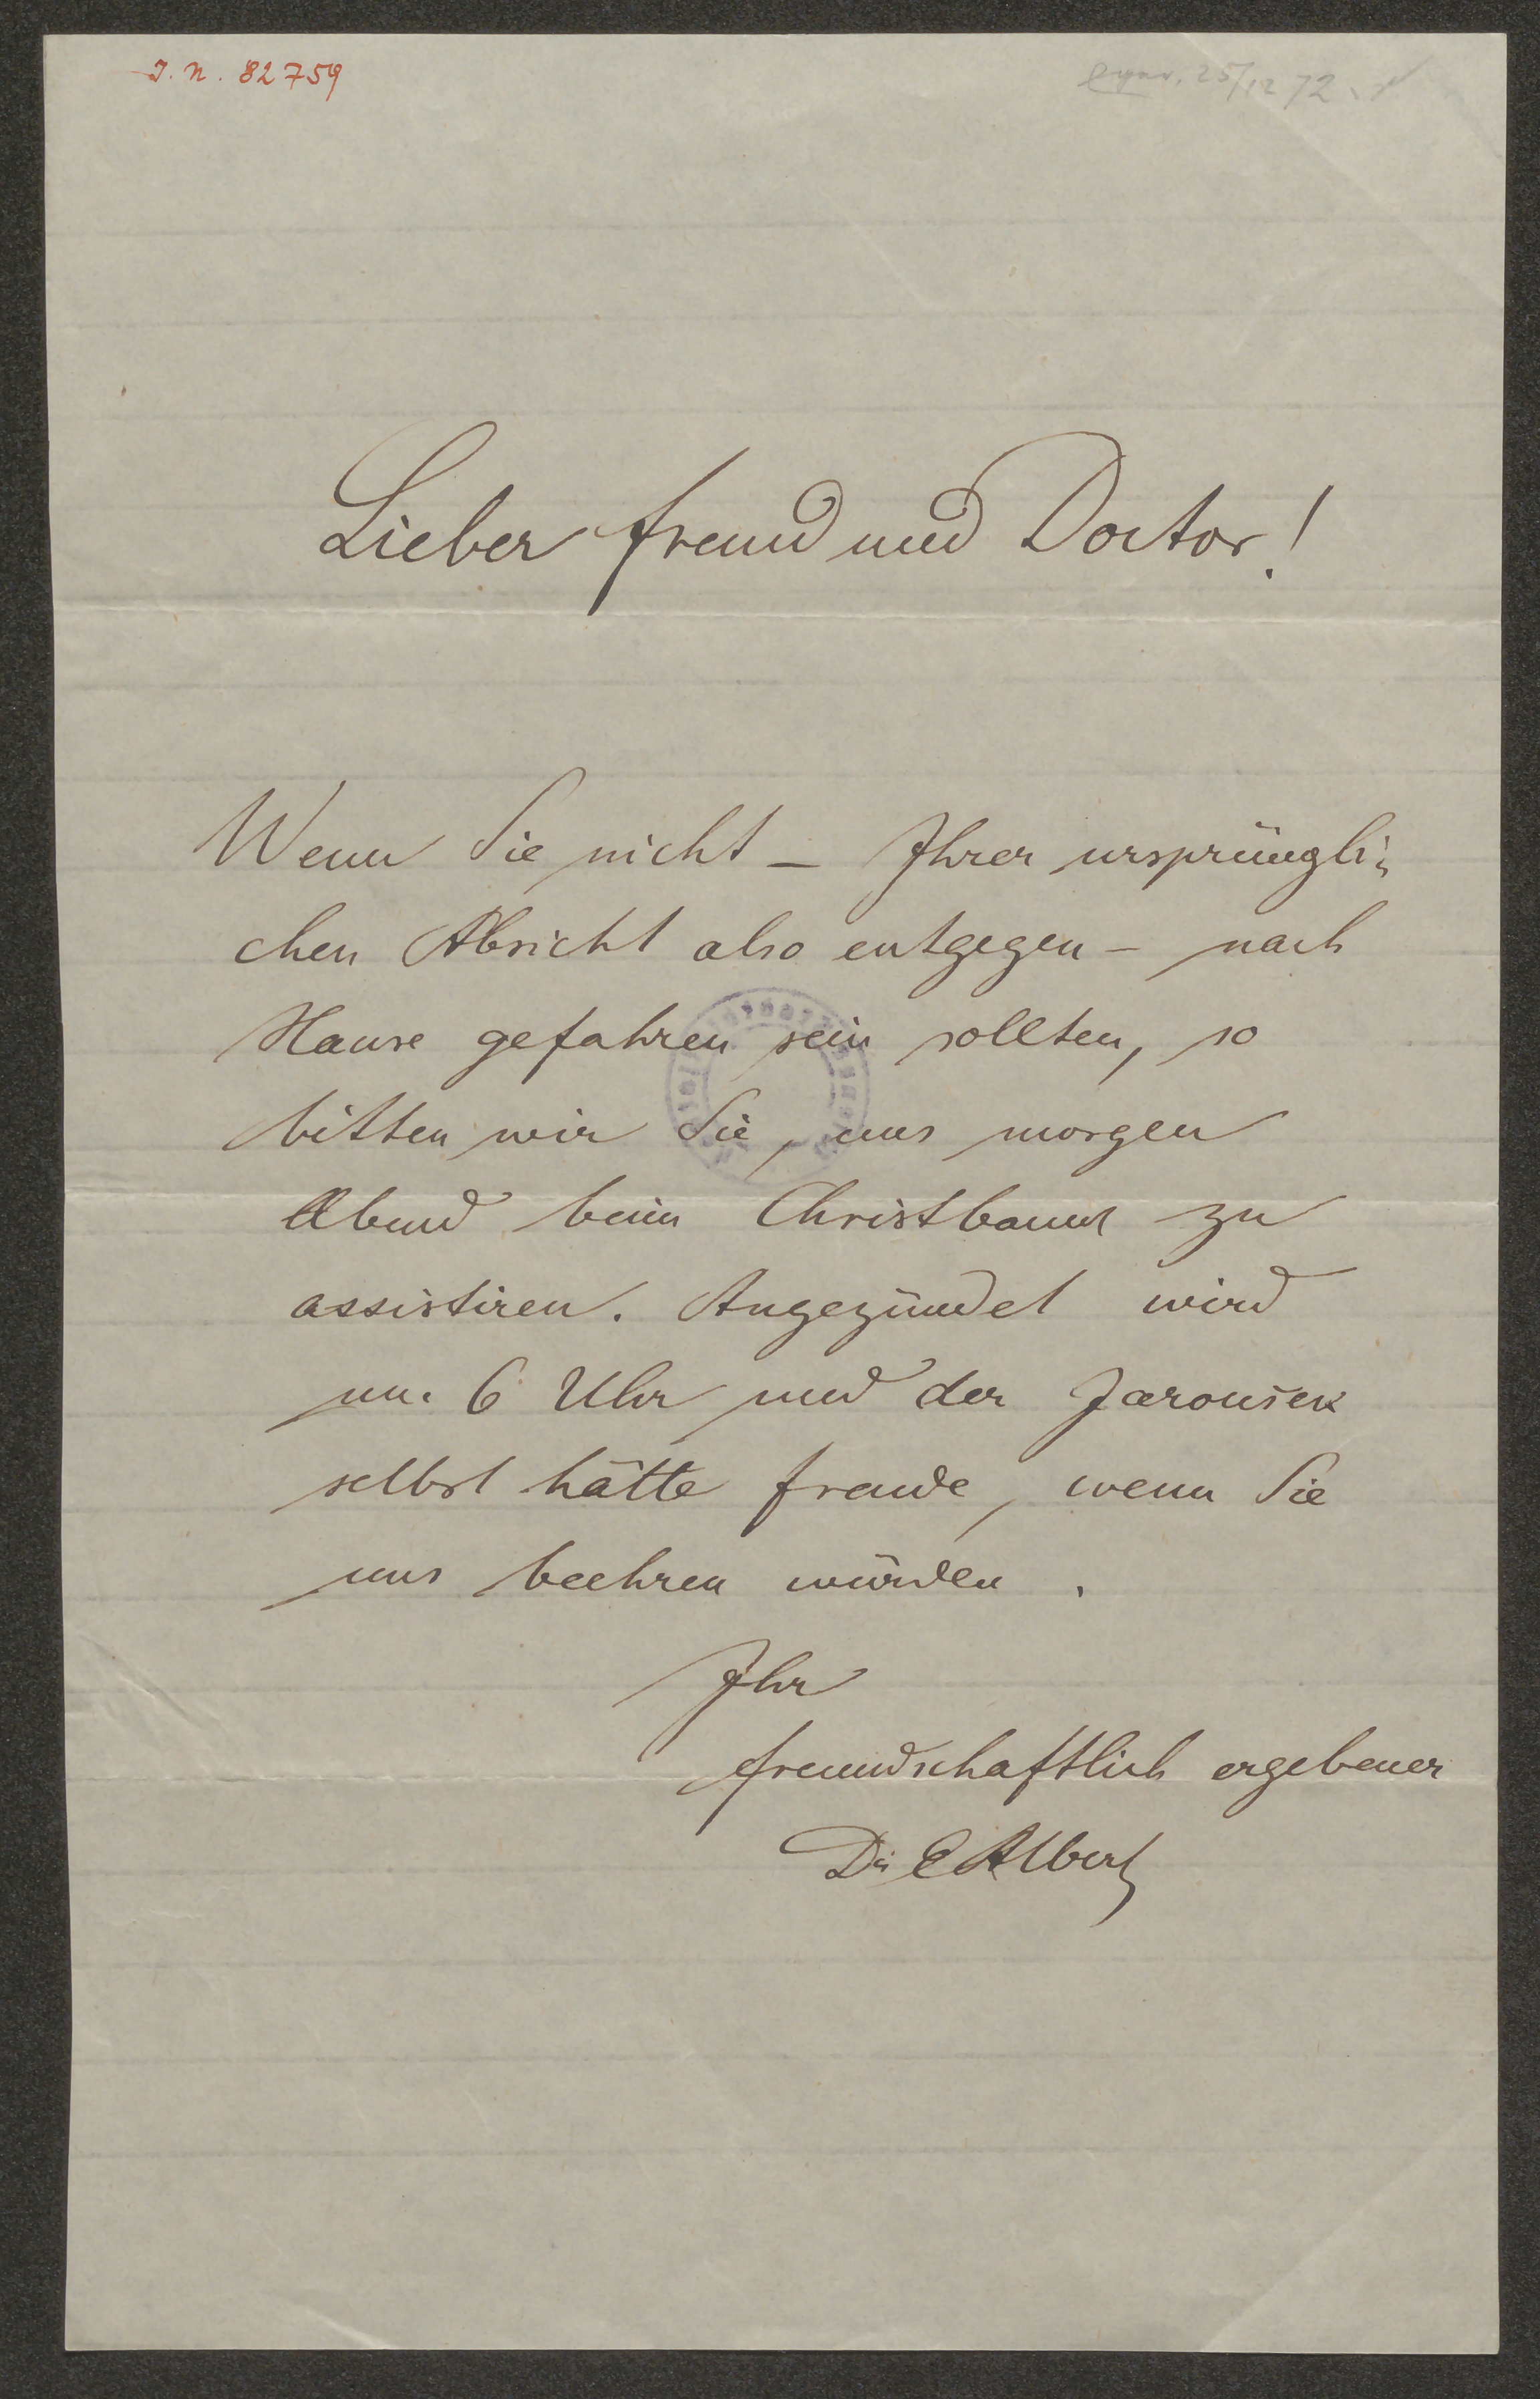 J. N. 82759
25/12 72
Lieber Freund und Doctor!
Wenn Sie nicht – Ihrer ursprüngli-
chen Absicht also entgegen – nach
Hause gefahren sein sollten, so
bitten wir Sie, uns morgen
Abend beim Christbaum zu
assistiren. Angezündet wird
um 6 Uhr und der Jaroušek
selbst hätte Freude, wenn Sie
uns beehren würden.
Ihr
freundschaftlich ergebener
Dr E Albert